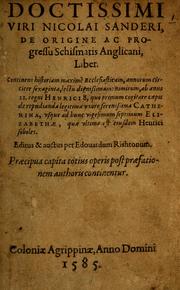 DOCTISSIMI
VIRI NICOLAI SANDERI,
DE ORIGINE AC PRO-
gressu Schismatis Anglicani,
Liber.
Continens historiam maximè Ecclesiasticam, annorum cir-
citer sexaginta, lectu dignissimam: nimirum, ab anno
21. regni HENRICI 8, quo primum cogitare cœpit
de repudianda legitima vxore serenissima CATHE-
RINA, vsque ad hunc vigesimum septimum ELI-
ZABETHÆ, quæ vltima est eiusdem Henrici
soboles.
Editus & auctus per Edouardum Rishtonum.
Præcipua capita totius operis post præfatio-
nem authoris continentur.
Coloniæ Agrippinæ, Anno Domini
1585.